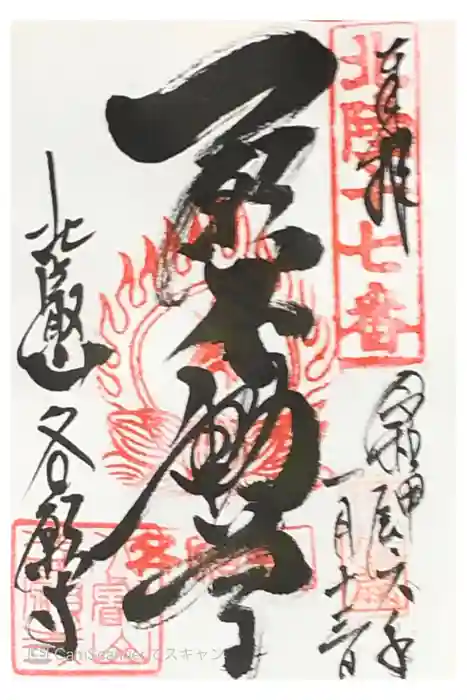 奉拝
北陸十七番
令和甲辰六年
一月
一願不動尊
北叡山 各願寺
CamScannerでスキャン